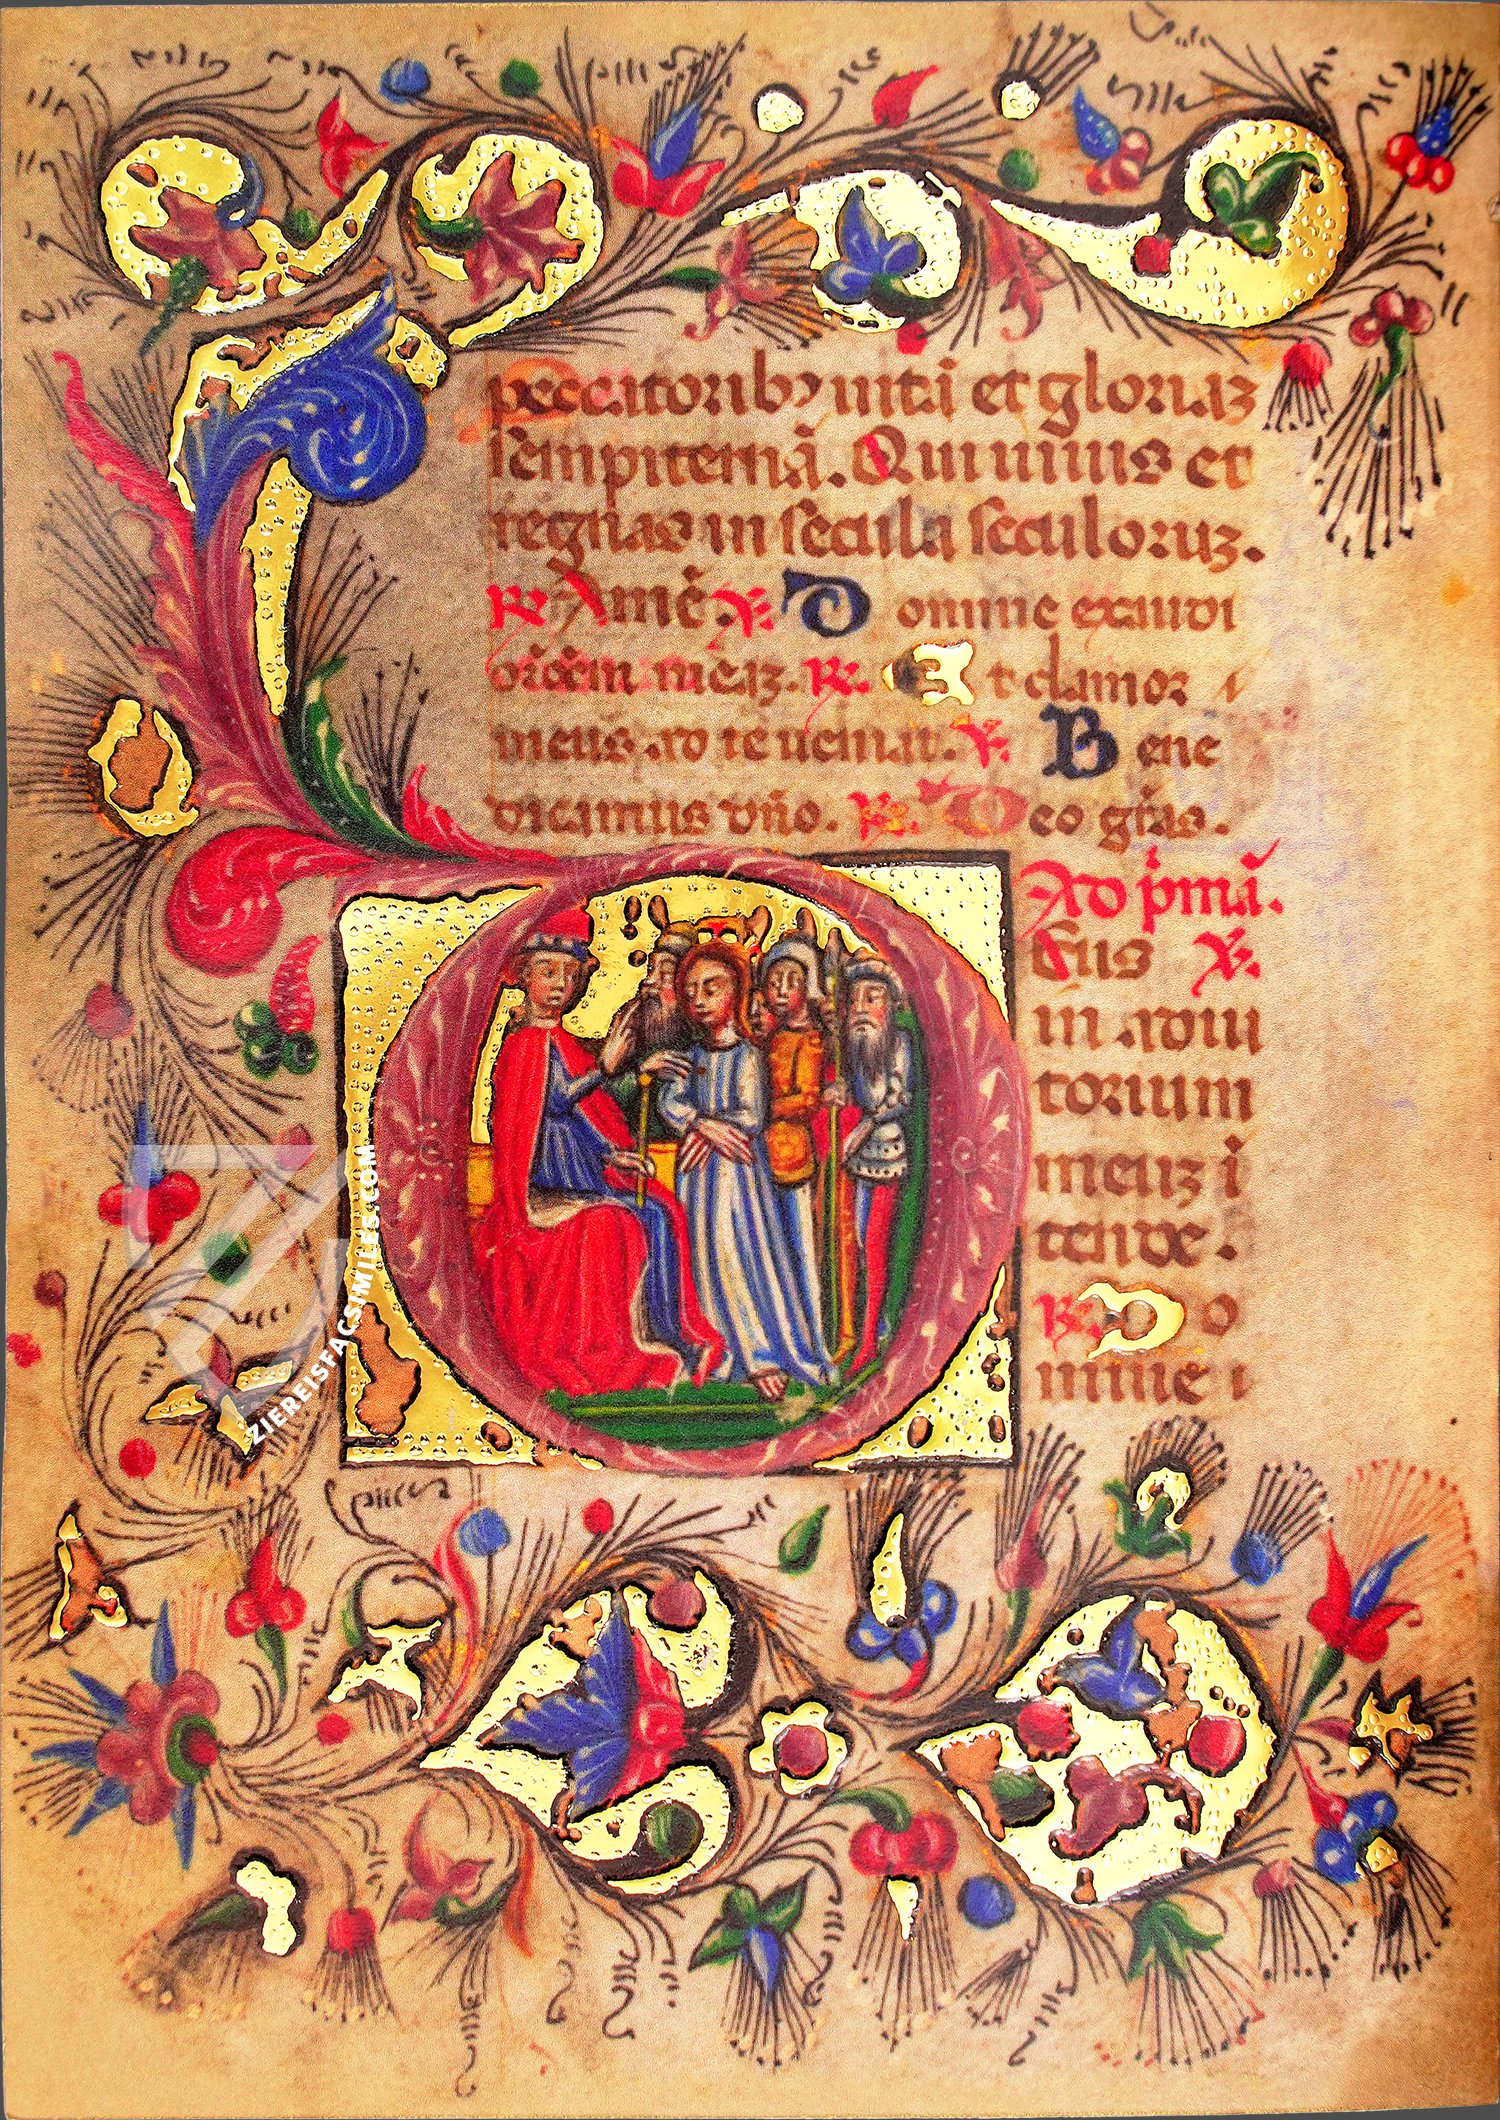 peccatoribꝰ uitā et gloriaz
sempiternā. Qui uiuis et
regnas in secula seculoruz.
℟ Amē. ℣. Domine exaudi
orōem meaz. ℟. Et clamor
meus ad te ueniat. ℣. Bene
dicamus dño. ℟. Deo grās.
Ad pͥmā.
Eus ℣.
in adiu
torium
meuz i
tende.
℟. Do
mine
ZIEREISFACSIMILES.COM